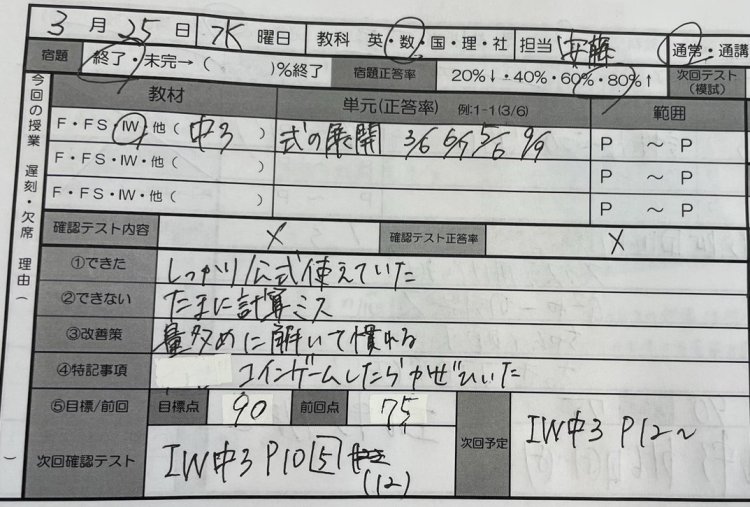 3月25日 水曜日 教科 英・数・国・理・社 担当 安藤 通常・通講
宿題 終了・未完→( )%終了 宿題正答率 20%↓・40%・60%・80%↑ 次回テスト(模試)
今回の授業 遅刻・欠席 理由( )
教材 単元(正答率) 例:1-1(3/6) 範囲
F・FS・IW・他( 中3 ) 式の展開 3/6 6/7 5/6 9/9 P ～ P
F・FS・IW・他( ) P ～ P
F・FS・IW・他( ) P ～ P
確認テスト内容 × 確認テスト正答率 ×
①できた しっかり公式使えていた
②できない たまに計算ミス
③改善策 量多めに解いて慣れる
④特記事項 コインゲームしたらかぜひいた
⑤目標/前回 目標点 90 前回点 75
次回確認テスト IW中3 P10 5 (12)
次回予定 IW中3 P12～